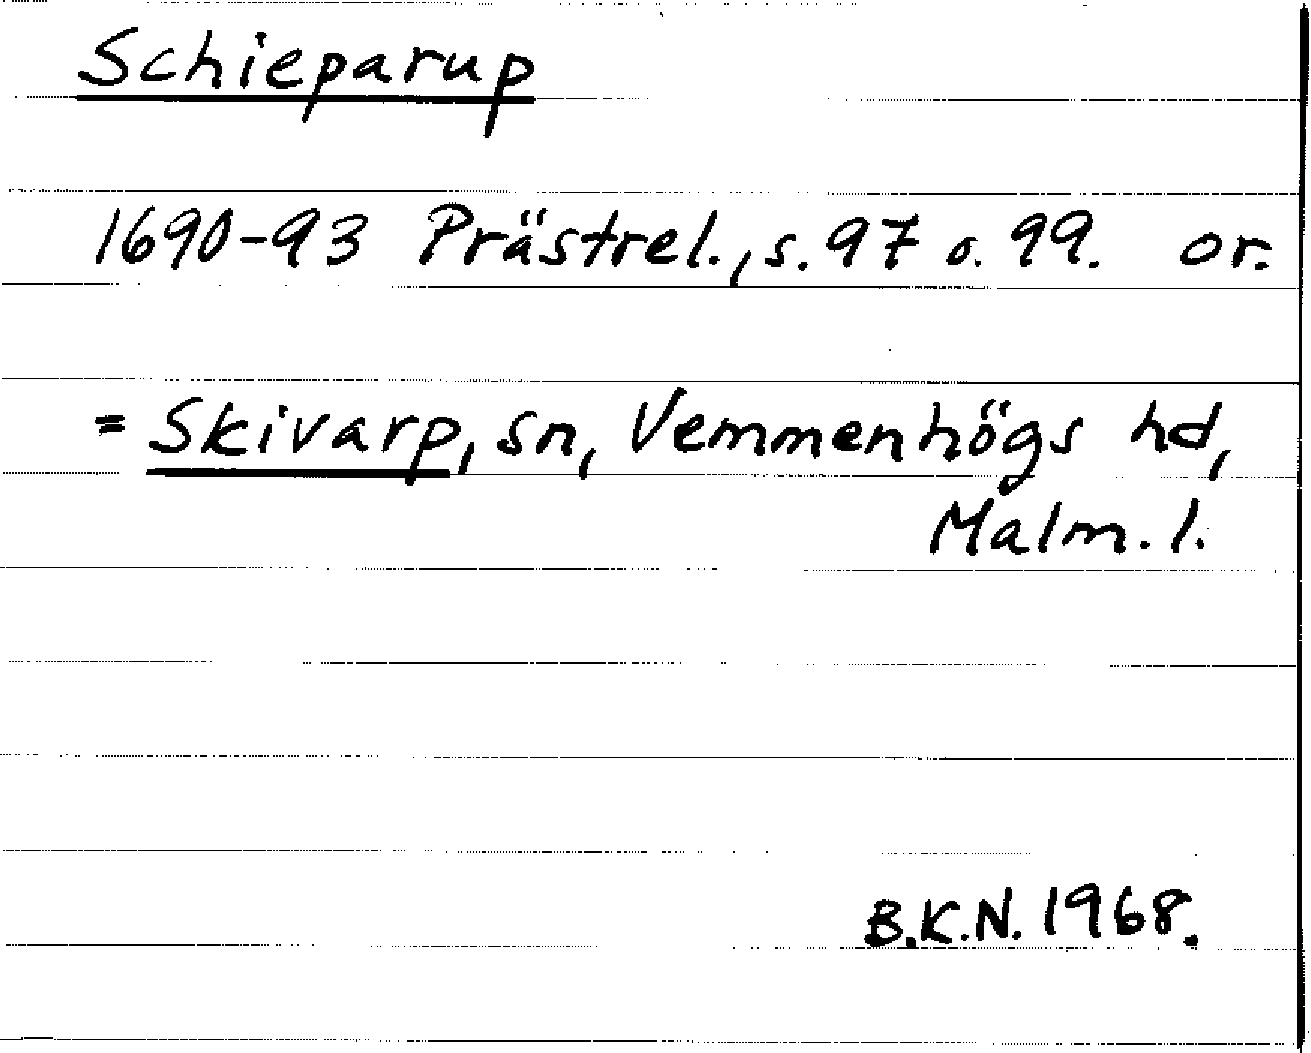 Schieparup
1690-93 Prästrel., s. 97 o. 99. or.
= Skivarp, sn, Vemmenhögs hd,
Malm. l.
B.K.N. 1968.